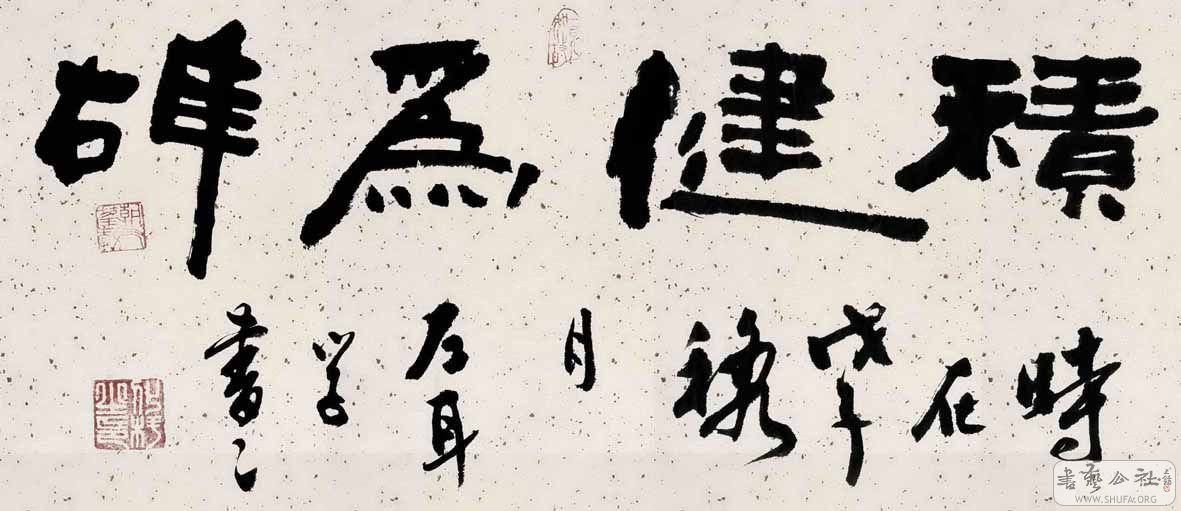 積健爲雄
時在戊午穐月左耳学書之
書藝公社
WWW.SHUFA.ORG